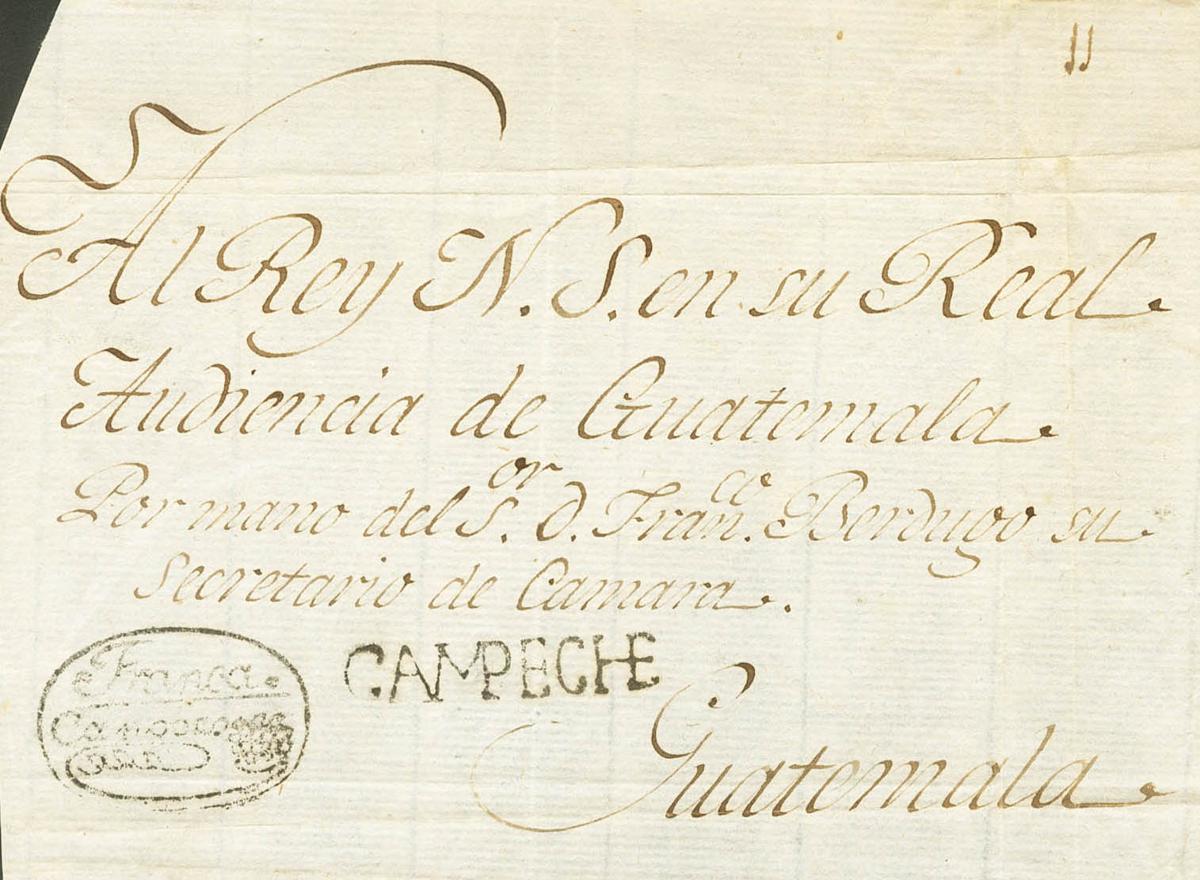 11
Al Rey N. S. en su Real
Audiencia de Guatemala
Por mano del S.or D. Fran.co Berdugo su
Secretario de Camara.
CAMPECHE
Franca
Guatemala